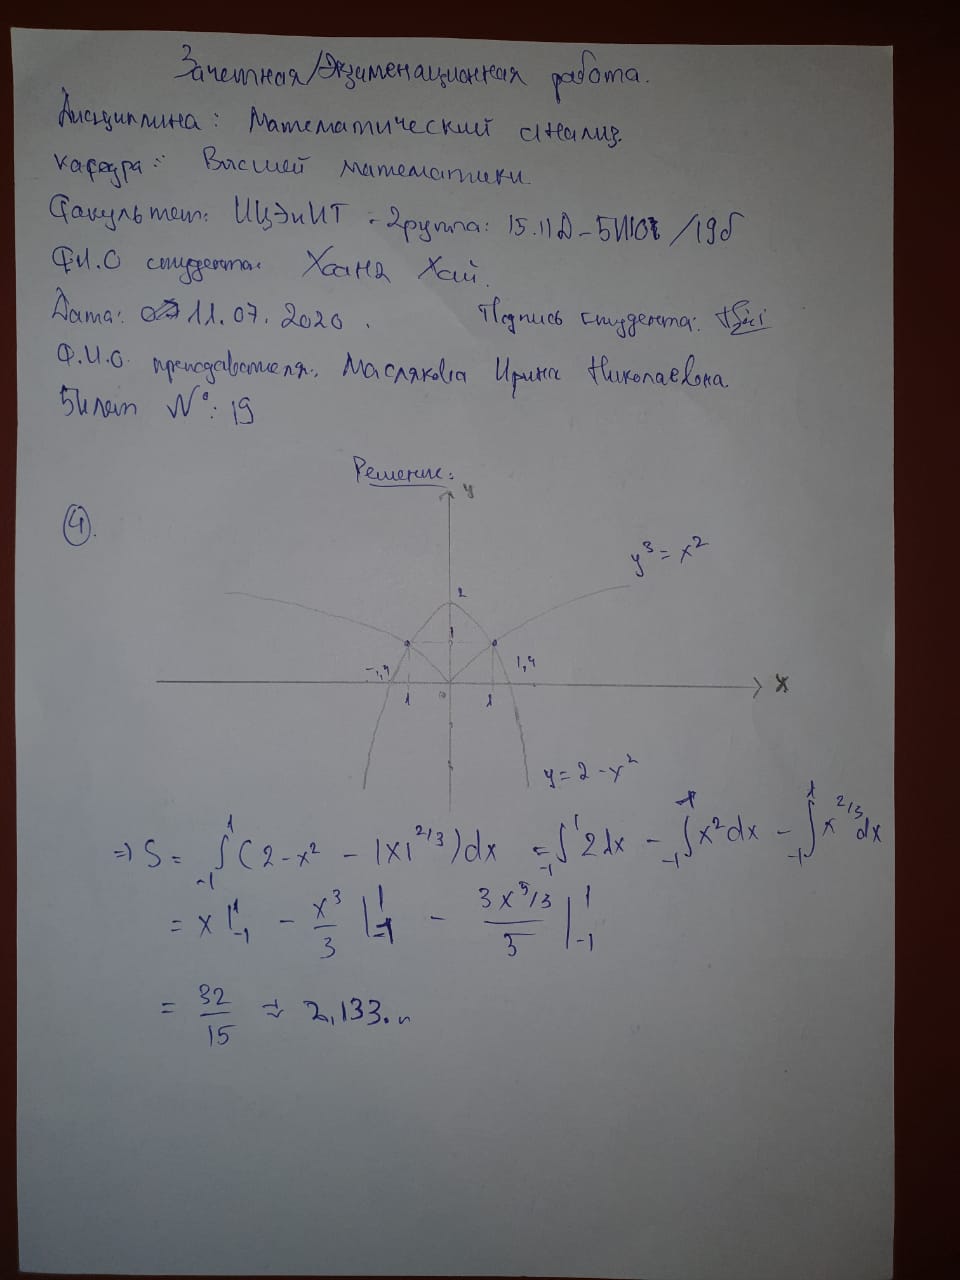 Зачетная/Экзаменационная работа.
Дисциплина: Математический анализ.
Кафедра: Высшей математики
Факультет: ИЦЭиИТ - Группа: /19б
Ф.И.О студента: Хоанг Хай.
Дата: 11.07.2020. Подпись студента:
Ф.И.О. преподавателя. Маслякова Ирина Николаевона.
Билет №: 19
Решение:
y
4.
y³ = x²
2
1
-1,4 1,4
x
1 0 1
y = 2 - x²
=> S = ∫₋₁¹ (2 - x² - |x|^2/3) dx = ∫₋₁¹ 2dx - ∫₋₁¹ x² dx - ∫₋₁¹ x^2/3 dx
= x |₋₁¹ - x³/3 |₋₁¹ - 3x^5/3 / 5 |₋₁¹
= 32/15 ≈ 2,133.